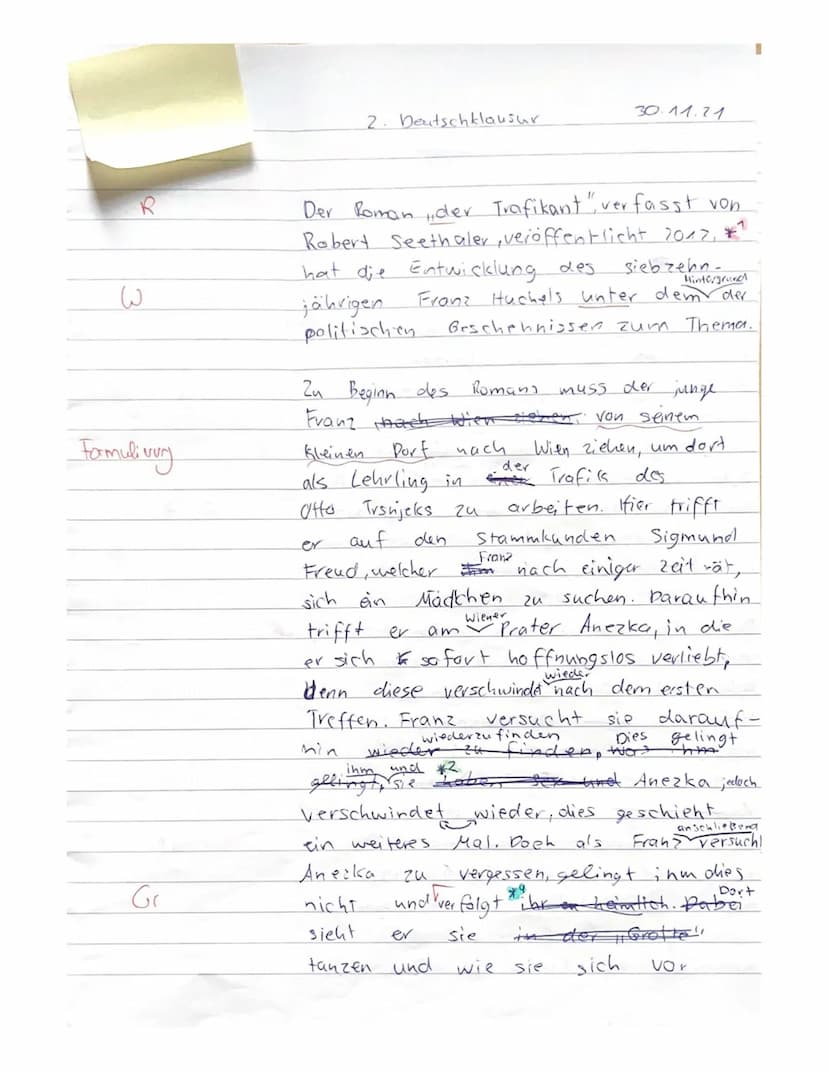 2. Deutschklausur 30.11.21
R Der Roman „der Trafikant", verfasst von
Robert Seethaler, veröffentlicht 2012, *1
hat die Entwicklung des siebzehn-
Hintergrund
W jährigen Franz Huchels unter dem der
politischen Geschehnissen zum Thema.
Zu Beginn des Romans muss der junge
Franz nach Wien ziehen, von seinem
Formulierung kleinen Dorf nach Wien ziehen, um dort
der
als Lehrling in Trafik des
Otto Trsnjeks zu arbeiten. Hier trifft
er auf den Stammkunden Sigmund
Franz
Freud, welcher ihm nach einiger Zeit rät,
sich ein Mädchen zu suchen. Daraufhin
Wiener
trifft er am Prater Anezka, in die
er sich sofort hoffnungslos verliebt,
wieder
denn diese verschwindet nach dem ersten
Treffen. Franz versucht sie darauf-
wiederzufinden Dies gelingt
hin wieder zu finden, was ihm
ihm und *2
gelingt, sie haben Sex und Anezka jedoch
verschwindet wieder, dies geschieht
anschließend
ein weiteres Mal. Doch als Franz versucht
Anezka zu vergessen, gelingt ihm dies
*4 Dort
Gr nicht und verfolgt ihr er heimlich. Dabei
sieht er sie in der „Grotte"
tanzen und wie sie sich vor